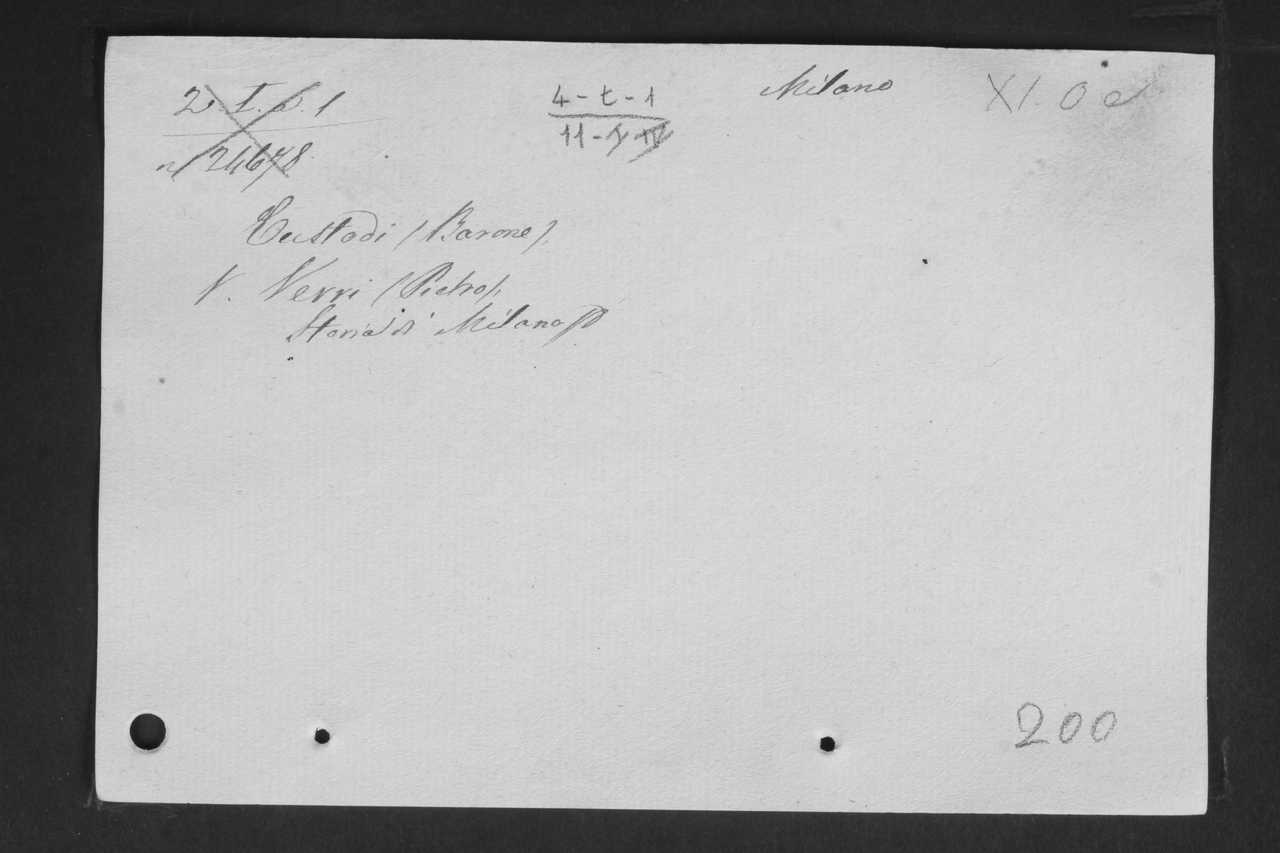 2. I. b. 1
n/ 24678
4-t-1
11-
Milano
XI. O e
Custodi (Barone).
V. Verri (Pietro).
Storia di Milano
200